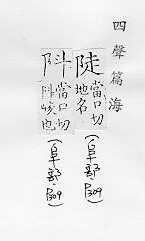 四聲篇海
陡 當口切
地名
(阜部 P309)
阧 當口切
阧峻也
(阜部 P309)